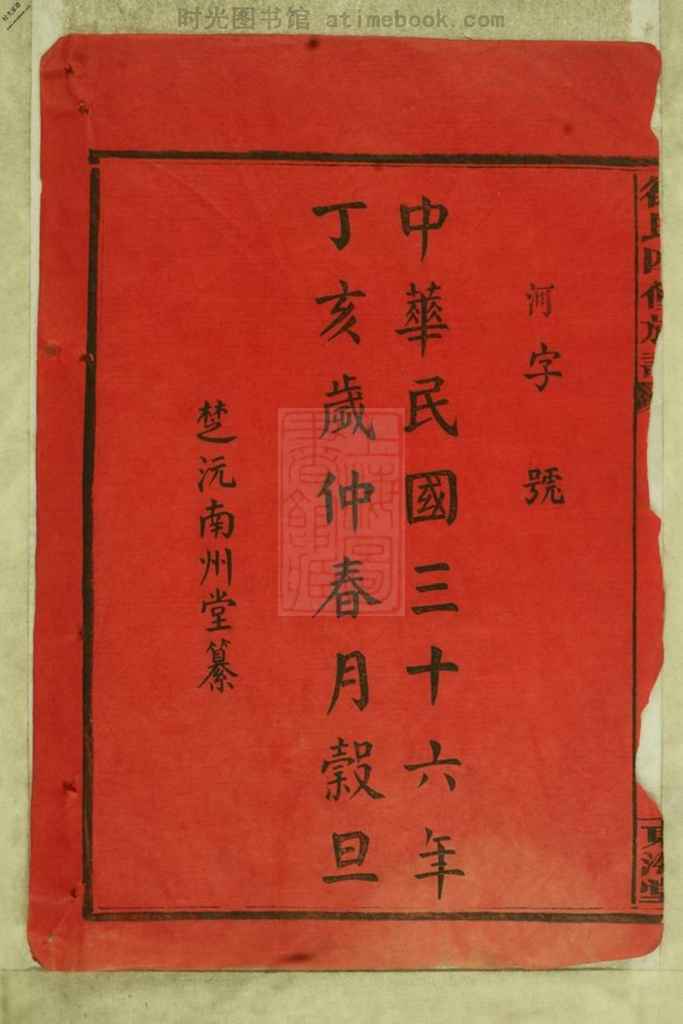 时光图书馆 atimebook.com
河字號
中華民國三十六年
丁亥歲仲春月榖旦
楚沅南州堂纂